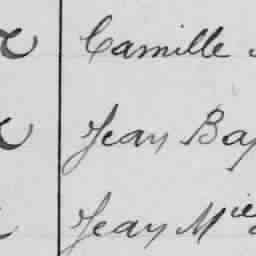 Camille
Jean Bap
Jean Mie